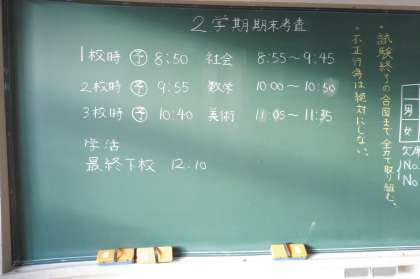 2学期期末考査
1校時 予 8:50 社会 8:55～9:45
2校時 予 9:55 数学 10:00～10:50
3校時 予 10:40 美術 11:05～11:35
学活
最終下校 12.10
・試験終了の合図まで、全力で取り組む。
・不正行為は絶対にしない。
男
女
欠席
No.
No